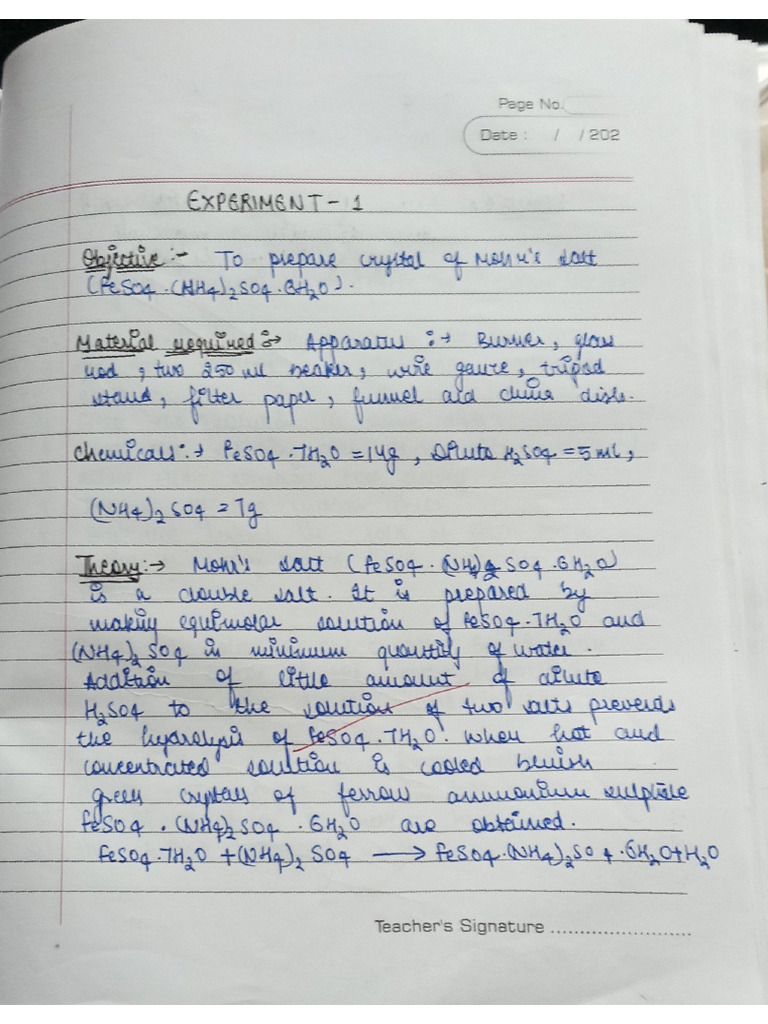 Page No.
Date : / /202
EXPERIMENT - 1
Objective:- To prepare crystal of Mohr's salt
(FeSO4.(NH4)2SO4.6H2O).
Material required:→ Apparatus :→ Burner, glass
rod, two 250 ml beaker, wire gauze, tripod
stand, filter paper, funnel and china dish.
Chemicals:→ FeSO4.7H2O = 14g, Dilute H2SO4 = 5 ml,
(NH4)2 SO4 = 7g
Theory:→ Mohr's salt (FeSO4.(NH4)2 SO4.6H2O)
is a double salt. It is prepared by
making equimolar solution of FeSO4.7H2O and
(NH4)2 SO4 in minimum quantity of water.
Addition of little amount of dilute
H2SO4 to the solution of two salts prevents
the hydrolysis of FeSO4.7H2O. When hot and
concentrated solution is cooled bluish
green crystals of ferrous ammonium sulphate
FeSO4.(NH4)2SO4.6H2O are obtained.
FeSO4.7H2O + (NH4)2 SO4 → FeSO4.(NH4)2SO4.6H2O+H2O
Teacher's Signature ........................